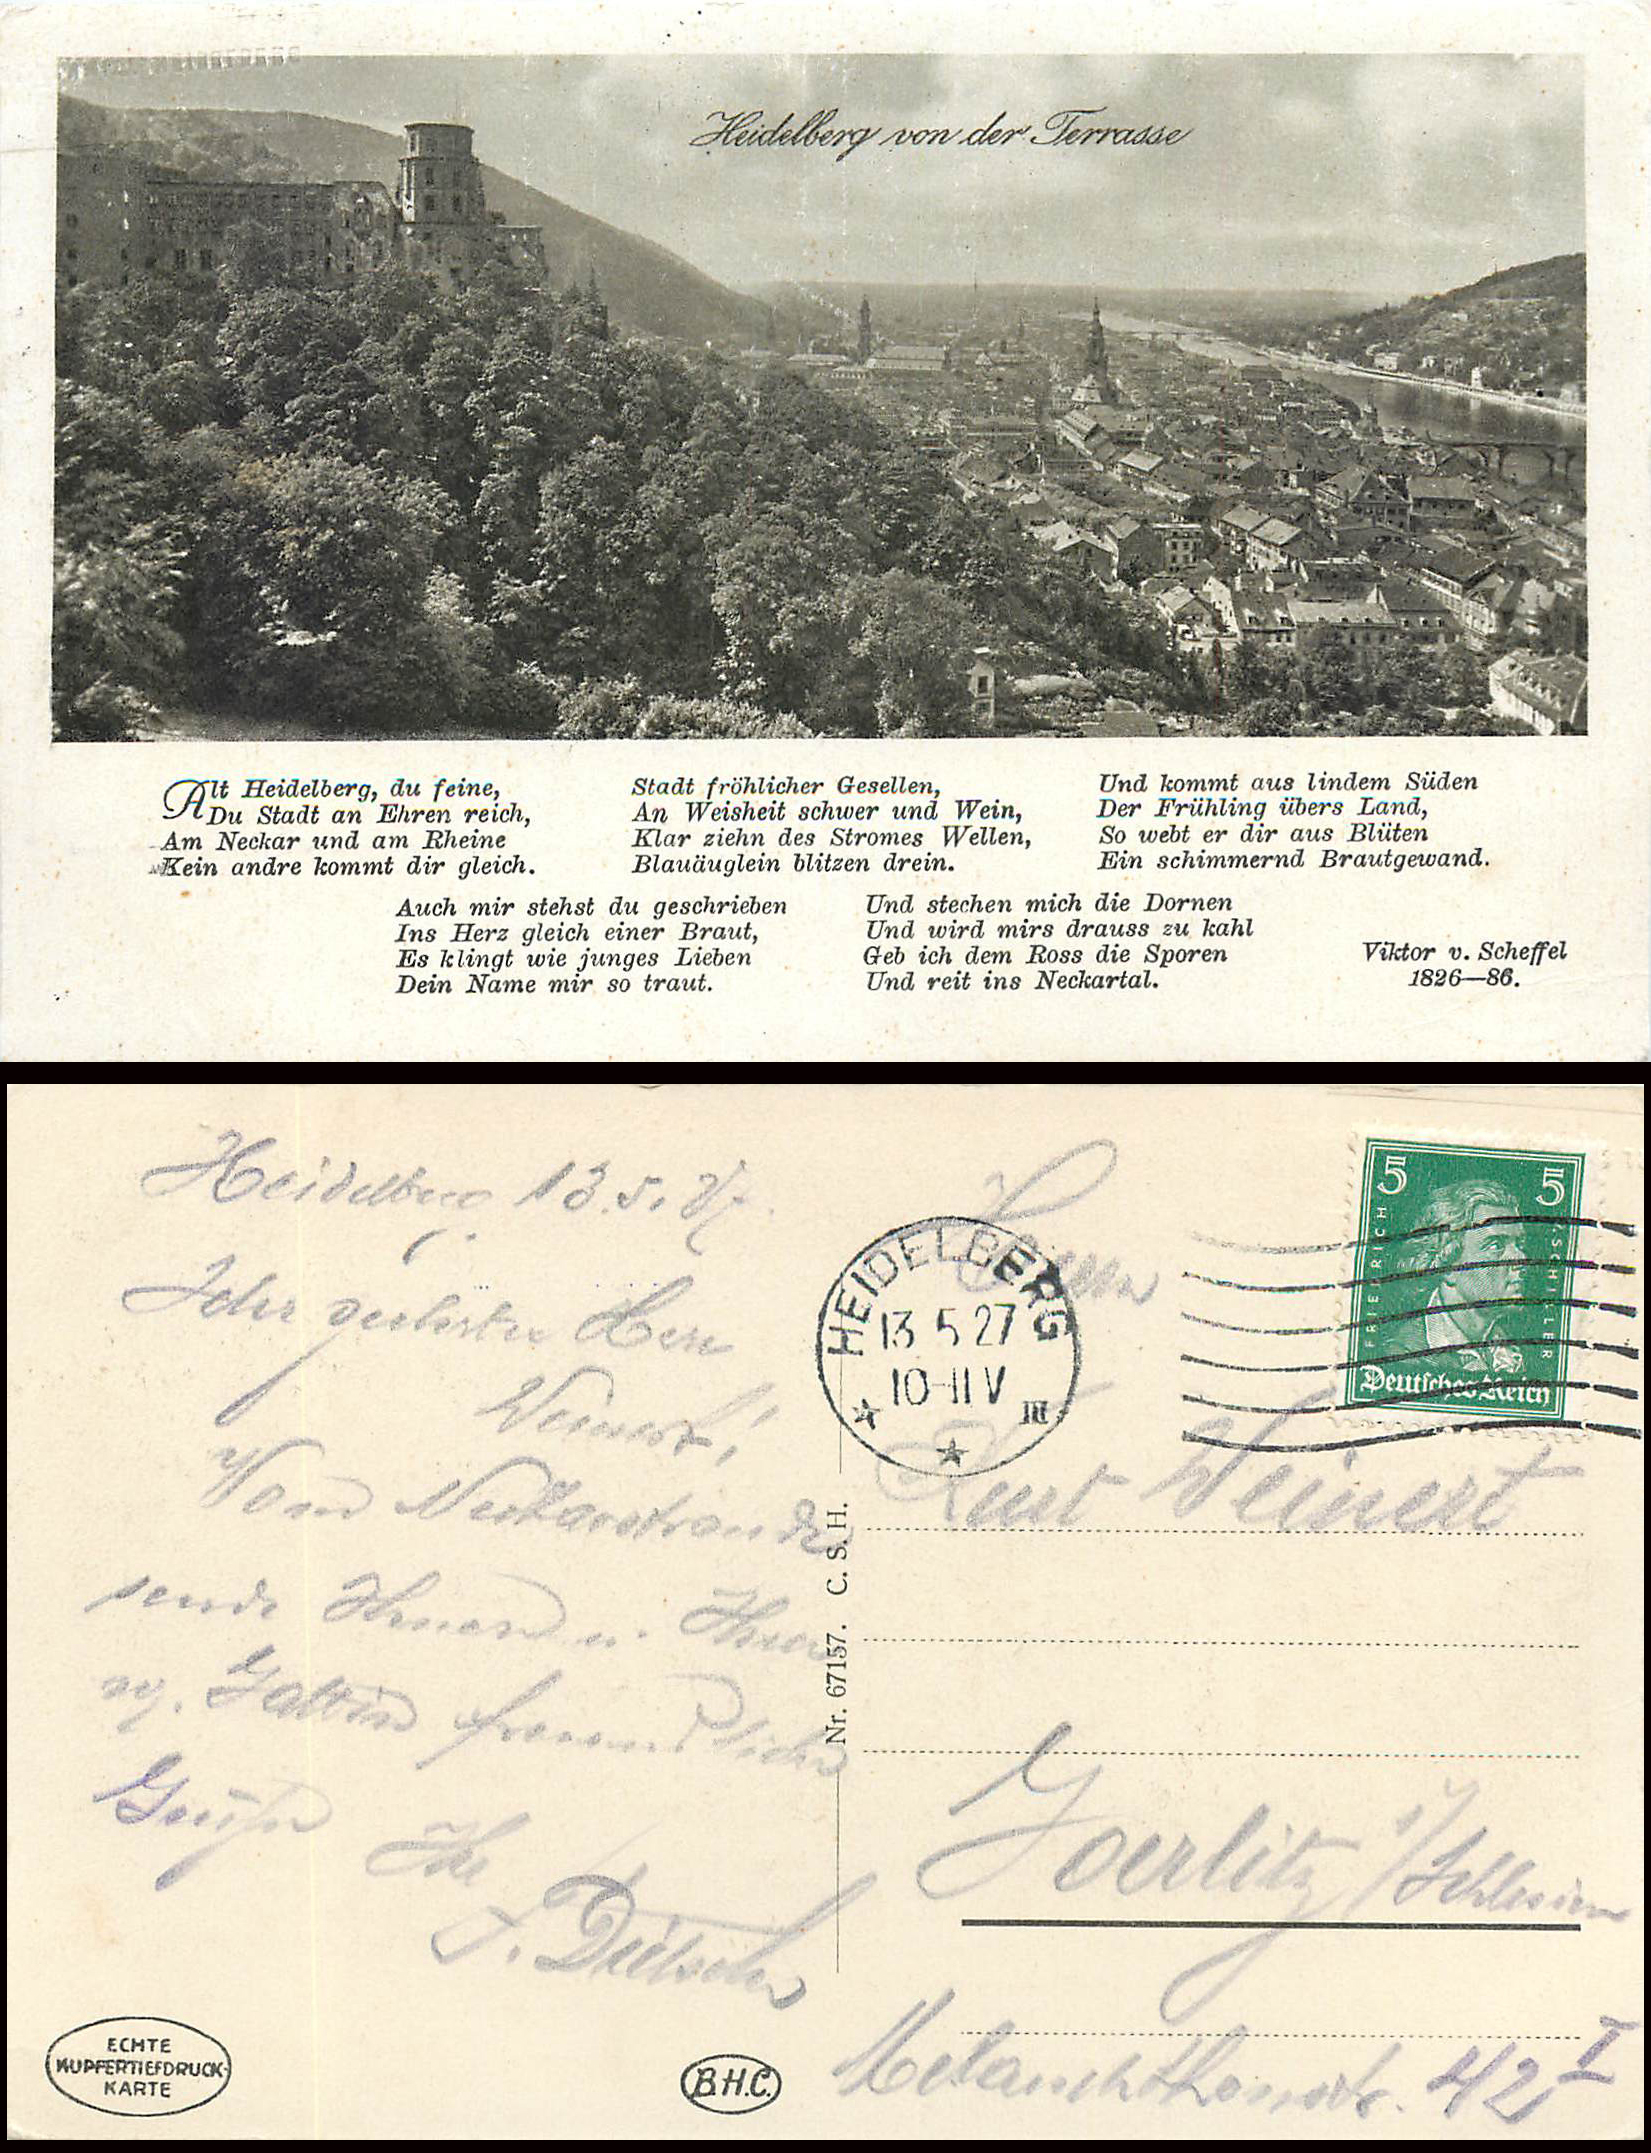 Heidelberg von der Terrasse
Alt Heidelberg, du feine,
Du Stadt an Ehren reich,
Am Neckar und am Rheine
Kein andre kommt dir gleich.
Stadt fröhlicher Gesellen,
An Weisheit schwer und Wein,
Klar ziehn des Stromes Wellen,
Blauäuglein blitzen drein.
Und kommt aus lindem Süden
Der Frühling übers Land,
So webt er dir aus Blüten
Ein schimmernd Brautgewand.
Auch mir stehst du geschrieben
Ins Herz gleich einer Braut,
Es klingt wie junges Lieben
Dein Name mir so traut.
Und stechen mich die Dornen
Und wird mirs drauss zu kahl
Geb ich dem Ross die Sporen
Und reit ins Neckartal.
Viktor v. Scheffel
1826—86.
Heidelberg 13.5.27.
Sehr geehrter Herr
Weinert!
Vom Neckarstrande
sende Ihnen u. Ihrer
Gattin freundliche
Grüße
Ihr
ECHTE
KUPFERTIEFDRUCK-
KARTE
B.H.C.
Nr. 67157. C. S. H.
HEIDELBERG
13 5 27
10-11 V
III
5 5
FRIEDRICH
V. SCHILLER
Deutsches Reich
Herrn
Kurt Weinert
Goerlitz i/Schlesien
Melanchthonstr. 42 I